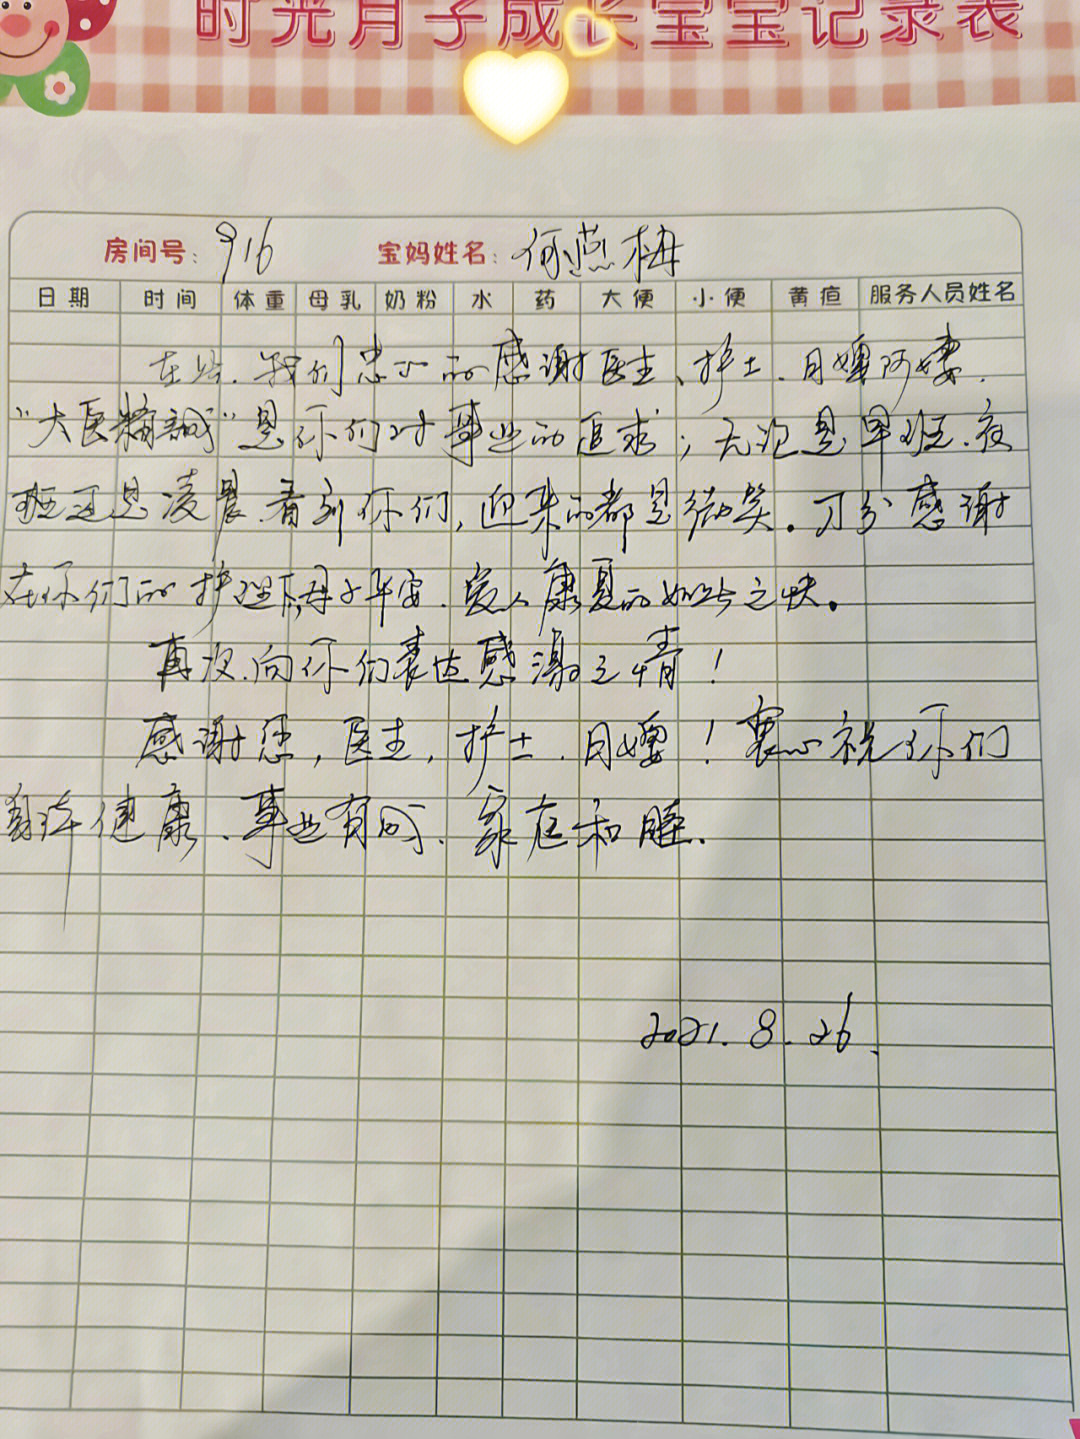 时光月子成长宝宝记录表
房间号: 916 宝妈姓名: 何燕梅
日期 时间 体重 母乳 奶粉 水 药 大便 小便 黄疸 服务人员姓名
在此、我们忠心的感谢医生、护士、月嫂阿姨.
“大医精诚”是你们对事业的追求；无论是早班.夜
班还是凌晨.看到你们,迎来的都是微笑。万分感谢
在你们的护理下,母子平安.爱人康复的如此之快。
再次向你们表达感激之情！
感谢您，医生，护士.月嫂！衷心祝你们
身体健康、事业有成、家庭和睦.
2021.8.26.